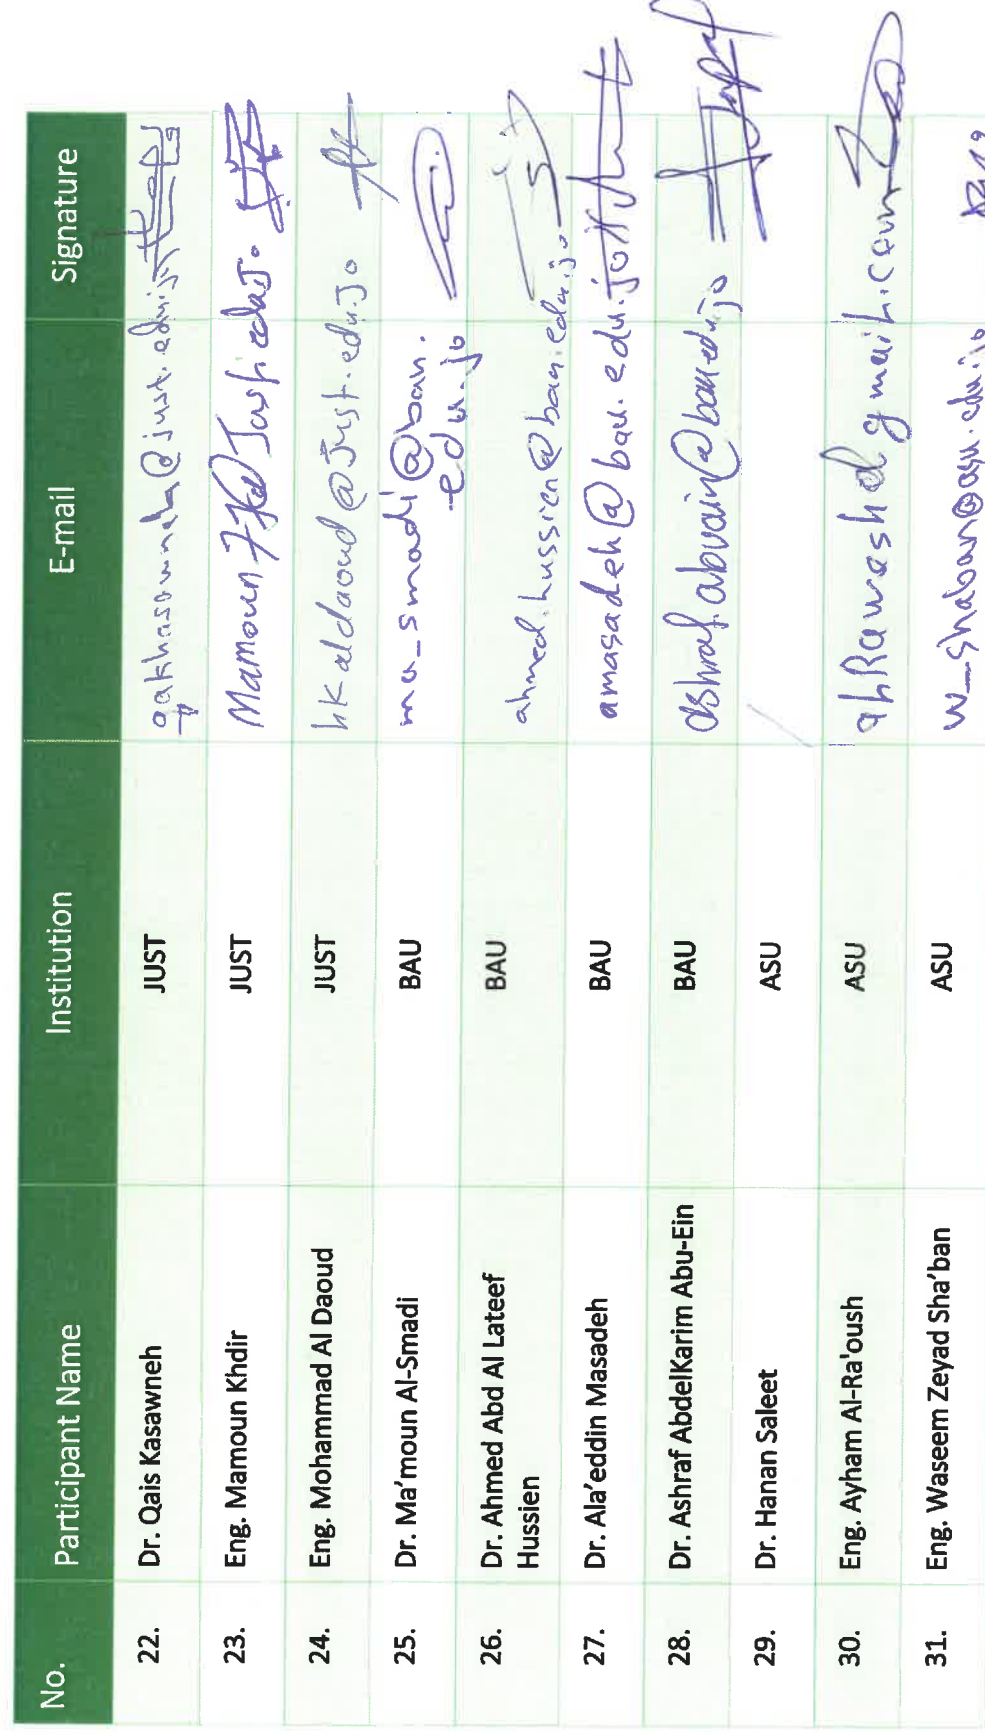 No. Participant Name Institution E-mail Signature
22. Dr. Qais Kasawneh JUST qakhasawneh@just.edu.jo
23. Eng. Mamoun Khdir JUST
24. Eng. Mohammad Al Daoud JUST hkaldaoud@Just.edu.Jo
25. Dr. Ma’moun Al-Smadi BAU ma_smadi@bau.
edu.jo
26. Dr. Ahmed Abd Al Lateef BAU ahmed.hussien@bau.edu.jo
Hussien
27. Dr. Ala’eddin Masadeh BAU amasadeh@bau.edu.jo
28. Dr. Ashraf AbdelKarim Abu-Ein BAU ashraf.abuain@bau.edu.jo
29. Dr. Hanan Saleet ASU
30. Eng. Ayham Al-Ra'oush ASU
31. Eng. Waseem Zeyad Sha’ban ASU w_shaban@asu.edu.jo